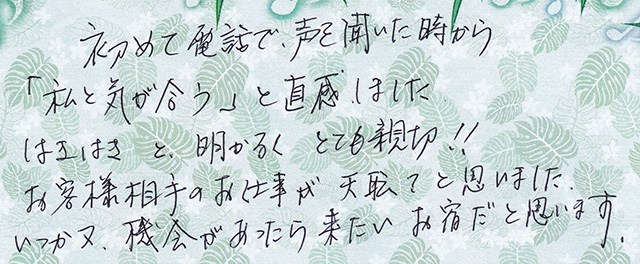 初めて電話で、声を聞いた時から
「私と気が合う」と直感しました
はきはき と、明かるく とても親切!!
お客様相手のお仕事が 天職? と思いました.
いつか又、機会があったら来たい お宿だと思います。